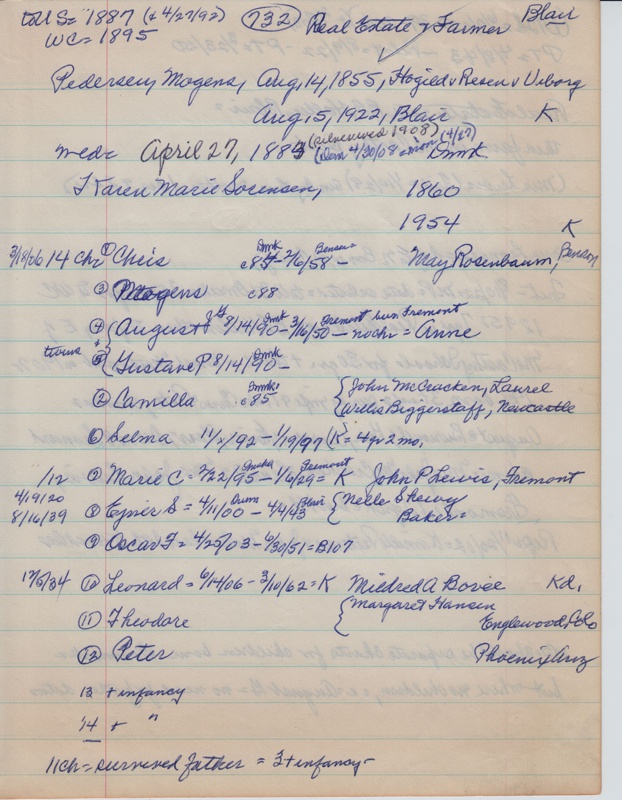 to US = 1887 (& 4/27/92) 732 Real Estate & Farmer Blair
WC = 1895
Pedersen, Mogens, Aug, 14, 1855, Hogild v Resen v Viborg
Aug, 5, 1922, Blair K
(silverwed 1908) (4/27)
med = April 27, 188 (Dan 4/30/08 = Dmk.
+ Karen Marie Sorensen, 1860
1954 K
3/18/26 14 ch = ① Chris Dmk c84 - 2/6/58 Benson - May Rosenbaum, Benson
③ Mogens c88
④ August 8/14/90 Dmk - 3/16/50 Fremont - no ch = Anne
twins + ⑤ Gustave P 8/14/90 Dmk -
② Camilla c85 Dmk { John McCracken, Laurel
Willis Biggerstaff, Newcastle
⑥ Selma 11/x/92 - 1/19/97 (K = 4 yr 2 mo,
1/12 ⑦ Marie C = 2/22/95 Omaha - 1/6/29 Fremont = K John P Lewis, Fremont
4/19/20 ⑧ Ejner S = 4/11/00 - 4/4/43 Blair { Nelle Shewey
8/16/39 Baker =
⑨ Oscar F = 4/25/03 - 6/30/51 = B107
12/5/34 ⑩ Leonard = 6/14/06 - 3/10/62 = K Mildred A Bovee Kd,
⑪ Theodore { Margaret Hansen
Englewood, Colo
⑫ Peter Phoenix, Ariz
13 + infancy
14 + "
11 ch = survived father = 3 + infancy -